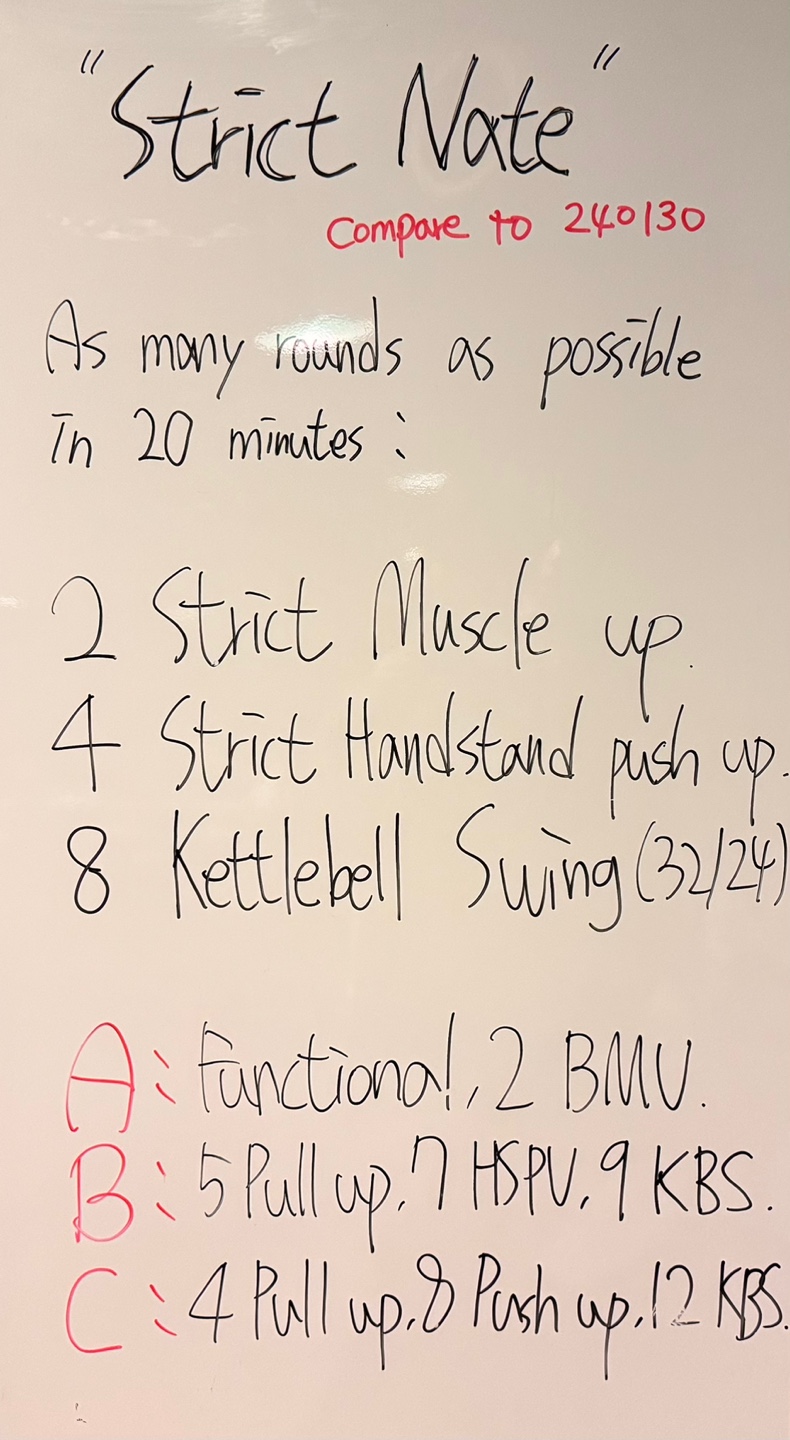 "Strict Nate"
Compare to 240130
As many rounds as possible
in 20 minutes :
2 Strict Muscle up.
4 Strict Handstand push up.
8 Kettlebell Swing (32/24)
A: Functional, 2 BMU.
B: 5 Pull up, 7 HSPU, 9 KBS.
C: 4 Pull up, 8 Push up, 12 KBS.